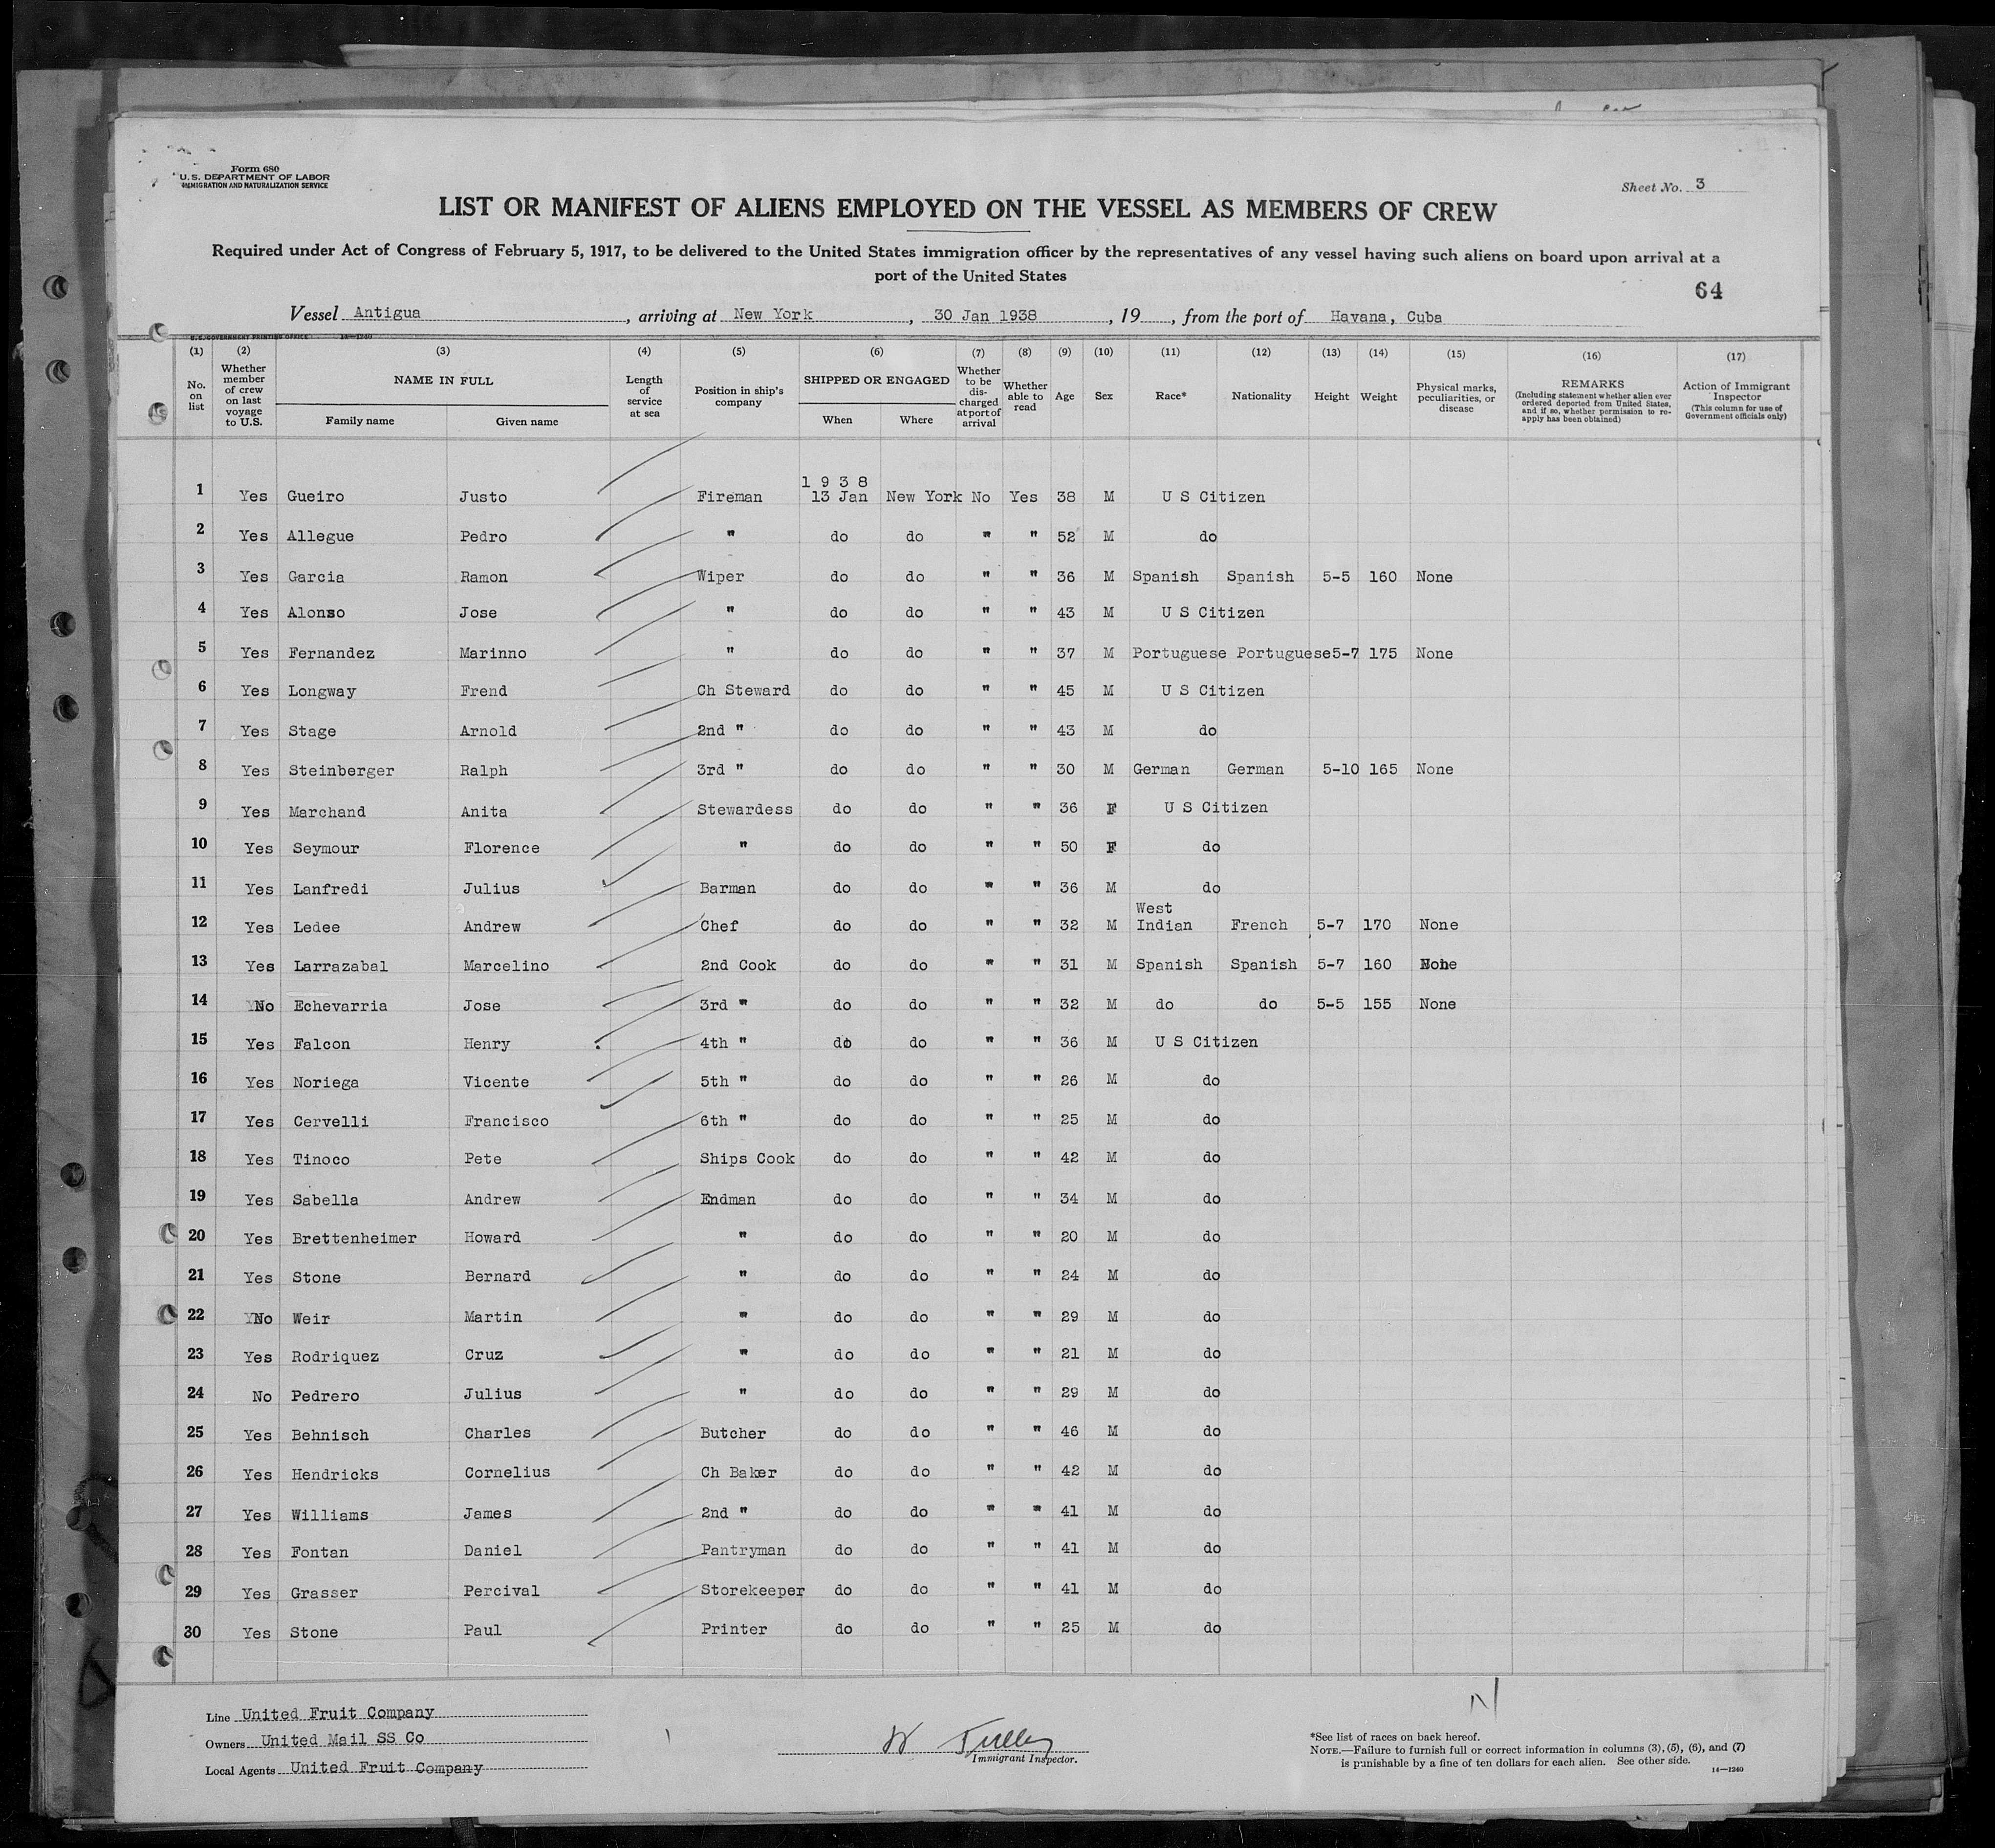 Form 680
U. S. DEPARTMENT OF LABOR
IMMIGRATION AND NATURALIZATION SERVICE
Sheet No. 3
LIST OR MANIFEST OF ALIENS EMPLOYED ON THE VESSEL AS MEMBERS OF CREW
Required under Act of Congress of February 5, 1917, to be delivered to the United States immigration officer by the representatives of any vessel having such aliens on board upon arrival at a
port of the United States
64
Vessel Antigua, arriving at New York, 30 Jan 1938, 19, from the port of Havana, Cuba
U. S. GOVERNMENT PRINTING OFFICE 14—1240
(1) (2) (3) (4) (5) (6) (7) (8) (9) (10) (11) (12) (13) (14) (15) (16) (17)
No. on list
Whether member of crew on last voyage to U.S.
NAME IN FULL
Family name
Given name
Length of service at sea
Position in ship's company
SHIPPED OR ENGAGED
When
Where
Whether to be discharged at port of arrival
Whether able to read
Age
Sex
Race*
Nationality
Height
Weight
Physical marks, peculiarities, or disease
REMARKS
(Including statement whether alien ever ordered deported from United States, and if so, whether permission to reapply has been obtained)
Action of Immigrant Inspector
(This column for use of Government officials only)
1 9 3 8
1 Yes Gueiro Justo Fireman 13 Jan New York No Yes 38 M U S Citizen
2 Yes Allegue Pedro " do do " " 52 M do
3 Yes Garcia Ramon Wiper do do " " 36 M Spanish Spanish 5-5 160 None
4 Yes Alonso Jose " do do " " 43 M U S Citizen
5 Yes Fernandez Marinno " do do " " 37 M Portuguese Portuguese 5-7 175 None
6 Yes Longway Frend Ch Steward do do " " 45 M U S Citizen
7 Yes Stage Arnold 2nd " do do " " 43 M do
8 Yes Steinberger Ralph 3rd " do do " " 30 M German German 5-10 165 None
9 Yes Marchand Anita Stewardess do do " " 36 F U S Citizen
10 Yes Seymour Florence " do do " " 50 F do
11 Yes Lanfredi Julius Barman do do " " 36 M do
12 Yes Ledee Andrew Chef do do " " 32 M West Indian French 5-7 170 None
13 Yes Larrazabal Marcelino 2nd Cook do do " " 31 M Spanish Spanish 5-7 160 None
14 No Echevarria Jose 3rd " do do " " 32 M do do 5-5 155 None
15 Yes Falcon Henry 4th " do do " " 36 M U S Citizen
16 Yes Noriega Vicente 5th " do do " " 26 M do
17 Yes Cervelli Francisco 6th " do do " " 25 M do
18 Yes Tinoco Pete Ships Cook do do " " 42 M do
19 Yes Sabella Andrew Endman do do " " 34 M do
20 Yes Brettenheimer Howard " do do " " 20 M do
21 Yes Stone Bernard " do do " " 24 M do
22 No Weir Martin " do do " " 29 M do
23 Yes Rodriquez Cruz " do do " " 21 M do
24 No Pedrero Julius " do do " " 29 M do
25 Yes Behnisch Charles Butcher do do " " 46 M do
26 Yes Hendricks Cornelius Ch Baker do do " " 42 M do
27 Yes Williams James 2nd " do do " " 41 M do
28 Yes Fontan Daniel Pantryman do do " " 41 M do
29 Yes Grasser Percival Storekeeper do do " " 41 M do
30 Yes Stone Paul Printer do do " " 25 M do
Line United Fruit Company
Owners United Mail SS Co
Local Agents United Fruit Company
Immigrant Inspector.
*See list of races on back hereof.
NOTE.—Failure to furnish full or correct information in columns (3), (5), (6), and (7)
is punishable by a fine of ten dollars for each alien. See other side.
14—1240